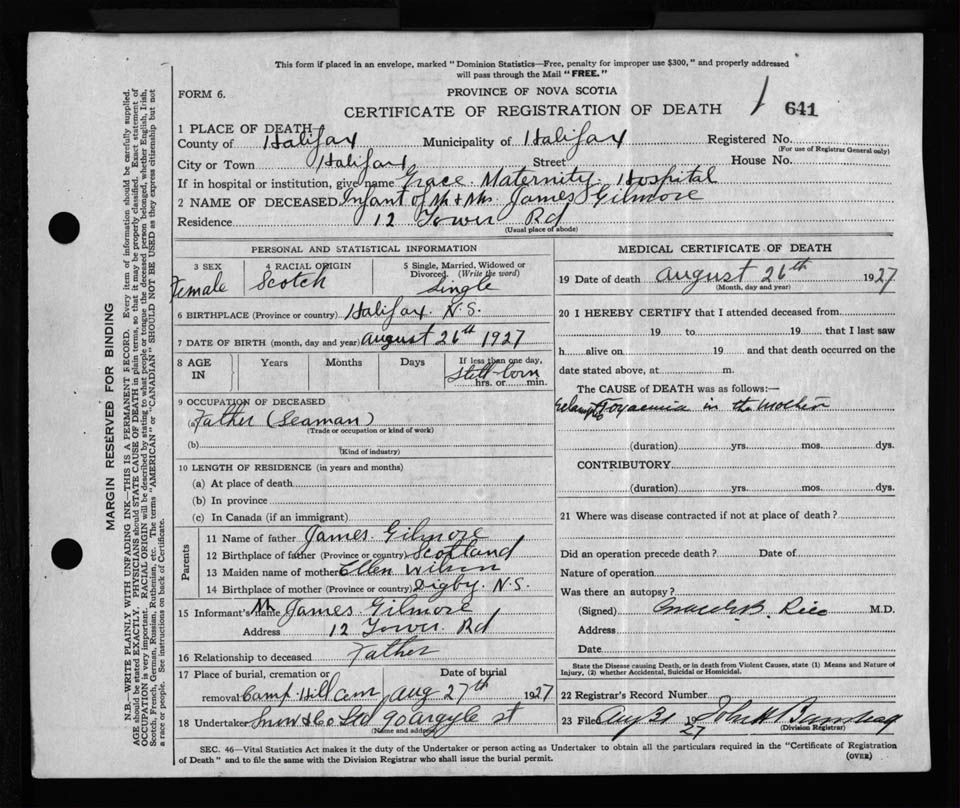 This form if placed in an envelope, marked "Dominion Statistics—Free, penalty for improper use $300," and properly addressed
will pass through the Mail "FREE."
FORM 6.
PROVINCE OF NOVA SCOTIA
CERTIFICATE OF REGISTRATION OF DEATH
641
1 PLACE OF DEATH
County of Halifax Municipality of Halifax Registered No.
(For use of Registrar General only)
City or Town Halifax Street House No.
If in hospital or institution, give name Grace Maternity Hospital
2 NAME OF DECEASED Infant of Mr & Mrs James Gilmore
Residence 12 Tower Rd
(Usual place of abode)
PERSONAL AND STATISTICAL INFORMATION
3 SEX
Female
4 RACIAL ORIGIN
Scotch
5 Single, Married, Widowed or
Divorced. (Write the word)
Single
6 BIRTHPLACE (Province or country) Halifax N.S.
7 DATE OF BIRTH (month, day and year) August 26th 1927
8 AGE
IN
Years
Months
Days
If less than one day,
Still born
hrs. or min.
9 OCCUPATION OF DECEASED
(a) Father (Seaman)
(Trade or occupation or kind of work)
(b)
(Kind of industry)
10 LENGTH OF RESIDENCE (in years and months)
(a) At place of death
(b) In province
(c) In Canada (if an immigrant)
Parents
11 Name of father James Gilmore
12 Birthplace of father (Province or country) Scotland
13 Maiden name of mother Ellen Wilson
14 Birthplace of mother (Province or country) Digby N.S.
15 Informant's name Mr James Gilmore
Address 12 Tower Rd
16 Relationship to deceased Father
17 Place of burial, cremation or Date of burial
removal Camp Hill Cem Aug 27th 1927
18 Undertaker Snow & Co Ltd 90 Argyle St
(Name and address)
MEDICAL CERTIFICATE OF DEATH
19 Date of death August 26th 1927
(Month, day and year)
20 I HEREBY CERTIFY that I attended deceased from
19 to 19 that I last saw
h alive on 19 and that death occurred on the
date stated above, at m.
The CAUSE of DEATH was as follows:—
Toxaemia in the Mother
(duration) yrs. mos. dys.
CONTRIBUTORY
(duration) yrs. mos. dys.
21 Where was disease contracted if not at place of death?
Did an operation precede death? Date of
Nature of operation
Was there an autopsy?
(Signed) B. Rice M.D.
Address
Date
State the Disease causing Death, or in death from Violent Causes, state (1) Means and Nature of
Injury, (2) whether Accidental, Suicidal or Homicidal.
22 Registrar's Record Number
23 Filed Aug 31 1927 John
(Division Registrar)
SEC. 46—Vital Statistics Act makes it the duty of the Undertaker or person acting as Undertaker to obtain all the particulars required in the "Certificate of Registration
of Death" and to file the same with the Division Registrar who shall issue the burial permit.
(OVER)
MARGIN RESERVED FOR BINDING
N.B.—WRITE PLAINLY WITH UNFADING INK—THIS IS A PERMANENT RECORD. Every item of information should be carefully supplied.
AGE should be stated EXACTLY. PHYSICIANS should STATE CAUSE OF DEATH in plain terms, so that it may be properly classified. Exact statement of
OCCUPATION is very important. RACIAL ORIGIN will be described by stating to what people or tongue the deceased person belonged, whether English, Irish,
Scotch, French, German, Russian, Ruthenian, etc. The terms "AMERICAN" or "CANADIAN" SHOULD NOT BE USED as they express citizenship but not
a race or people. See instructions on back of Certificate.